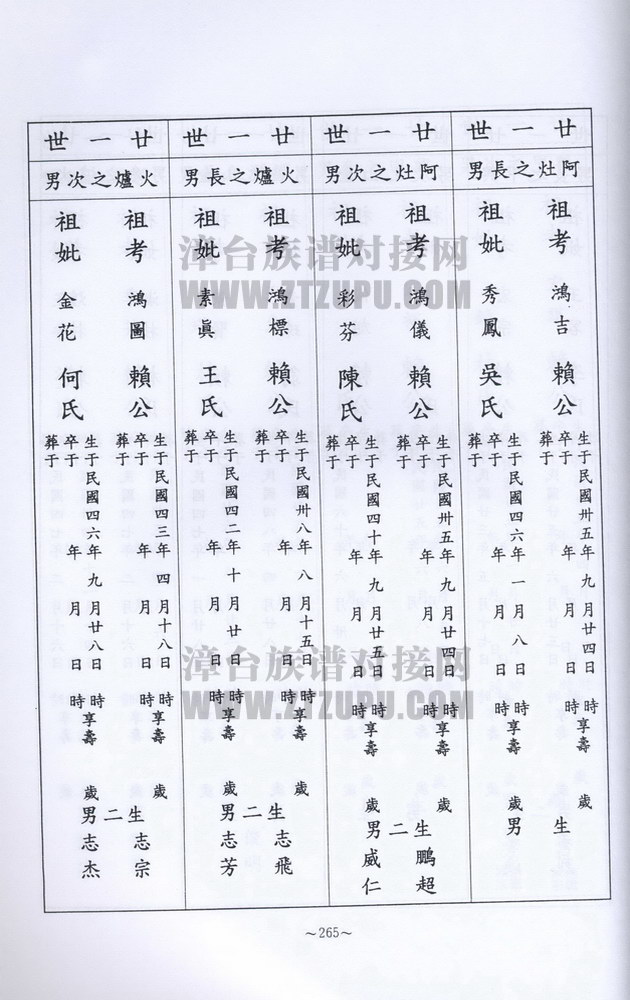 廿一世
阿灶之長男
祖考 鴻吉 賴公
生于民國卅五年九月廿四日 時享壽 歲
卒于 年 月 日 時
葬于
祖妣 秀鳳 吳氏
生于民國四六年一月八日 時享壽 歲
卒于 年 月 日 時
葬于
生 男
廿一世
阿灶之次男
祖考 鴻儀 賴公
生于民國卅五年九月廿四日 時享壽 歲
卒于 年 月 日 時
葬于
祖妣 彩芬 陳氏
生于民國四十年九月廿五日 時享壽 歲
卒于 年 月 日 時
葬于
生二男 鵬超 威仁
廿一世
火爐之長男
祖考 鴻標 賴公
生于民國卅八年八月十五日 時享壽 歲
卒于 年 月 日 時
葬于
祖妣 素眞 王氏
生于民國四二年十月廿日 時享壽 歲
卒于 年 月 日 時
葬于
生二男 志飛 志芳
廿一世
火爐之次男
祖考 鴻圖 賴公
生于民國四三年四月十八日 時享壽 歲
卒于 年 月 日 時
葬于
祖妣 金花 何氏
生于民國四六年九月廿八日 時享壽 歲
卒于 年 月 日 時
葬于
生二男 志宗 志杰
漳台族谱对接网
WWW.ZTZUPU.COM
漳台族谱对接网
WWW.ZTZUPU.COM
~265~